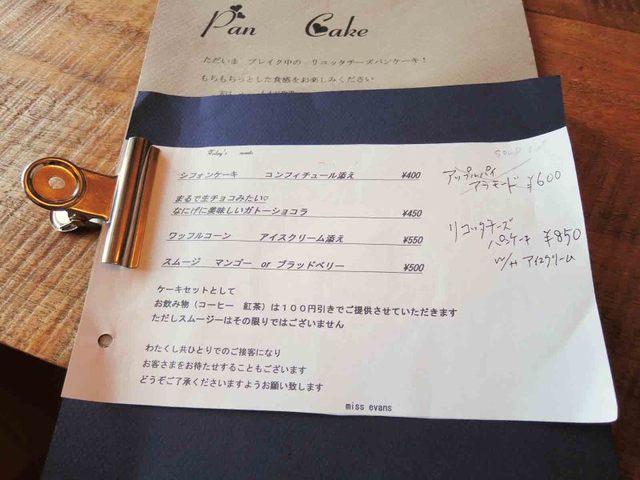 Pan Cake
ただいま ブレイク中の リコッタチーズパンケーキ！
もちもちっとした食感をお楽しみください
Today's
シフォンケーキ コンフィチュール添え ¥400
まるで生チョコみたい♡
なにげに美味しいガトーショコラ ¥450
ワッフルコーン アイスクリーム添え ¥550
スムージ マンゴー or ブラッドベリー ¥500
ケーキセットとして
お飲み物（コーヒー 紅茶）は１００円引きでご提供させていただきます
ただしスムージーはその限りではございません
わたくし共ひとりでのご接客になり
お客さまをお待たせすることもございます
どうぞご了承くださいますようお願い致します
miss evans
アップルパイ
アラモード ¥600
リコッタチーズ
パンケーキ ¥850
w/H アイスクリーム